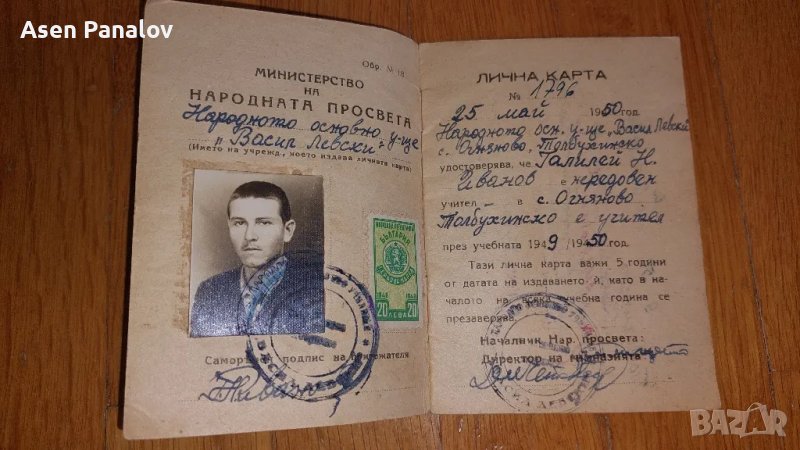 Asen Panalov
Обр. № 18
МИНИСТЕРСТВО
НА
НАРОДНАТА ПРОСВЕТА
Народното основно у-ще
„Васил Левски“
(Името на учрежд., което издава личната карта)
НАРОДНА РЕПУБЛИКА
БЪЛГАРИЯ
1948 1948
20 ЛЕВА 20
Саморъчен подпис на притежателя
ЛИЧНА КАРТА
№ 1796
25 май 1950 год.
Народното осн. у-ще „Васил Левски“
с. Огняново, Толбухинско
удостоверява, че Галилей Н.
Иванов е нередовен
учител в с. Огняново
Толбухинско е учител
през учебната 1949/1950 год.
Тази лична карта важи 5 години
от датата на издаването ѝ, като в на-
чалото на всяка учебна година се
презаверява.
Началник Нар. просвета:
Директор на гимназията
BAZAR
bazar.bg